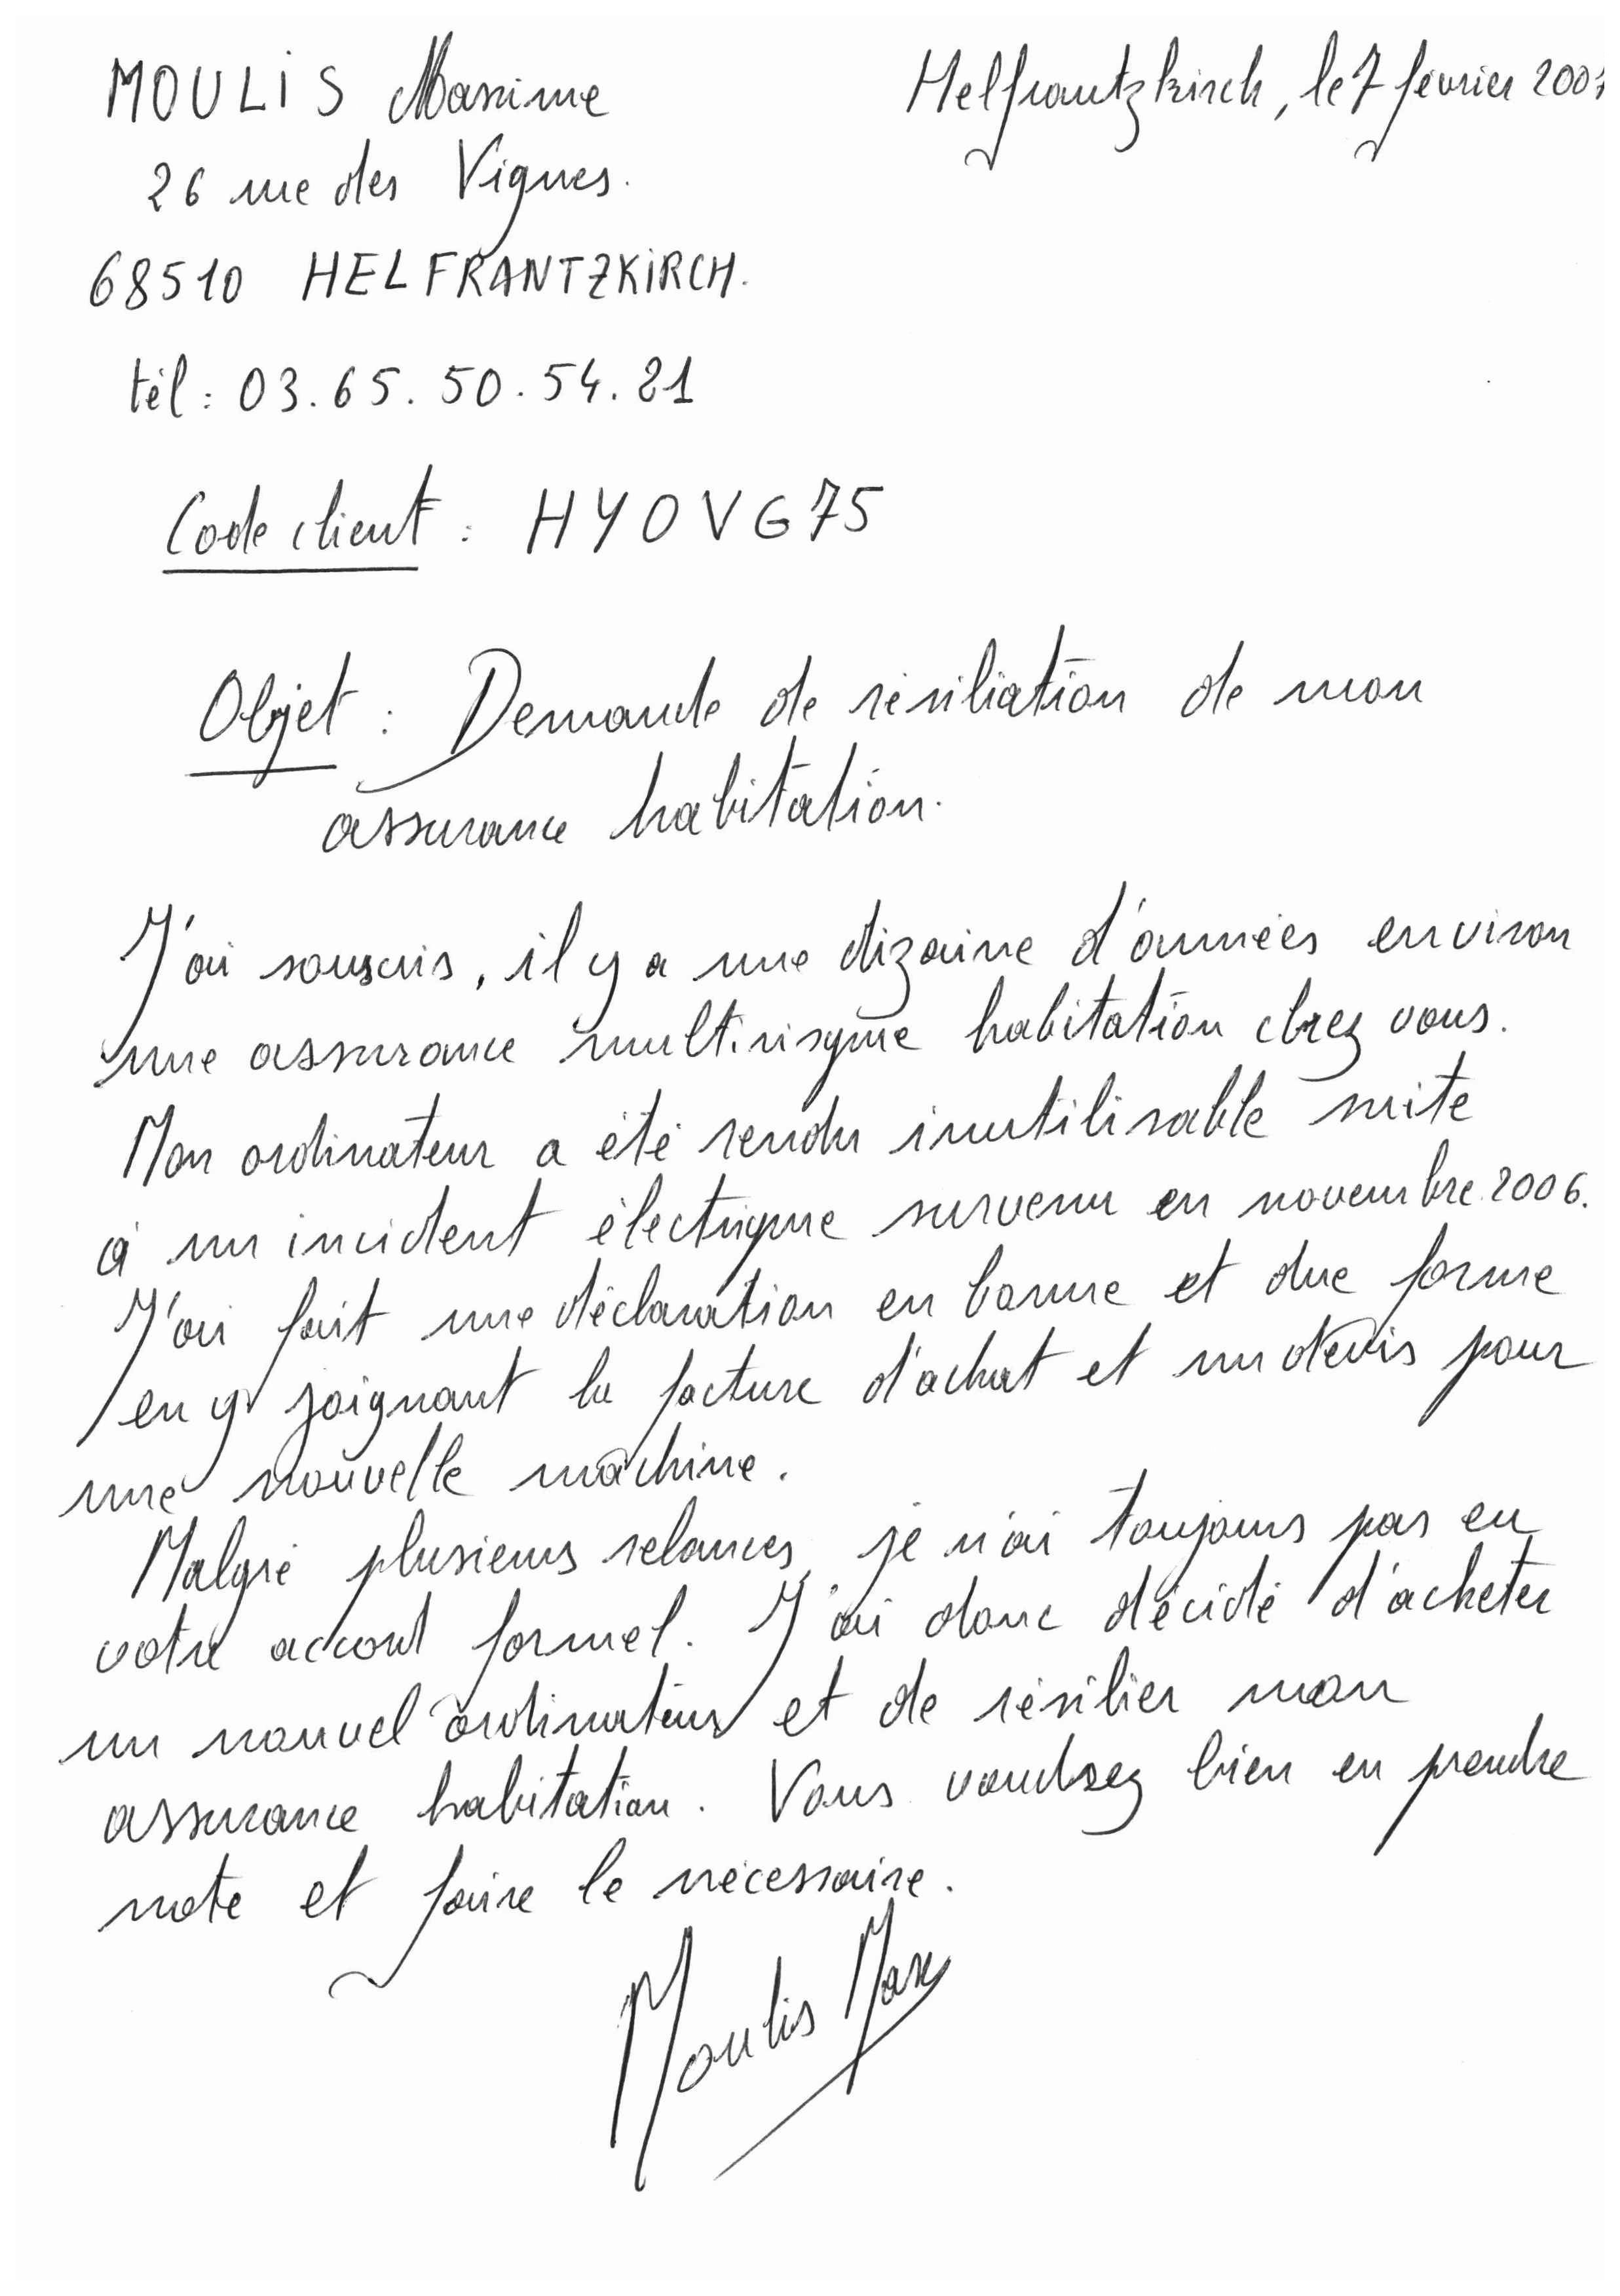 MOULIS Maxime
Helfrantzkirch, le 7 février 2007
26 rue des Vignes.
68510 HELFRANTZKIRCH.
tél : 03.65.50.54.21
Code client : HYOVG75
Objet : Demande de résiliation de mon
assurance habitation.
J'ai souscris, il y a une dizaine d'années environ
une assurance multirisque habitation chez vous.
Mon ordinateur a été rendu inutilisable suite
à un incident électrique survenu en novembre 2006.
J'ai fait une déclaration en bonne et due forme
en y joignant la facture d'achat et un devis pour
une nouvelle machine.
Malgré plusieurs relances, je n'ai toujours pas eu
votre accord formel. J'ai donc décidé d'acheter
un nouvel ordinateur et de résilier mon
assurance habitation. Vous voudrez bien en prendre
note et faire le nécessaire.
Moulis Max